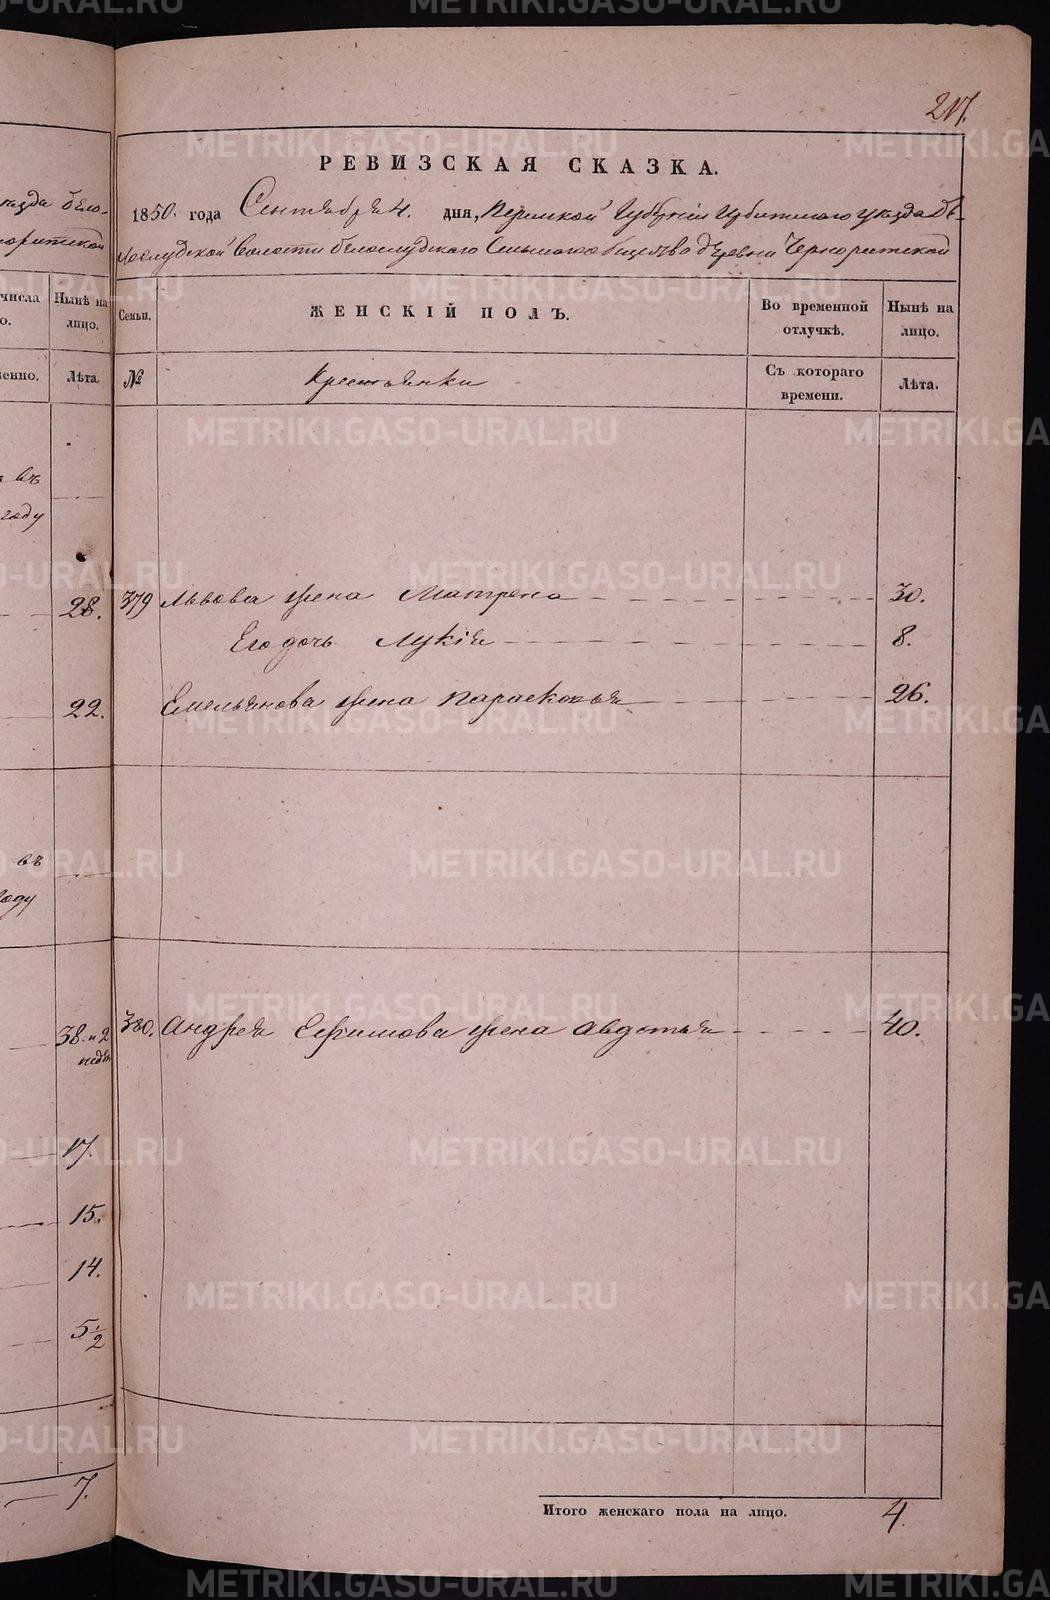 217.
РЕВИЗСКАЯ СКАЗКА.
1850. года Сентября 4. дня, Пермской Губернiи Ирбитского уѣзда Бѣ-
лослудской Волости Белослудского Сельского общества деревни Чернорѣтской
Семьи.
ЖЕНСКІЙ ПОЛЪ.
Во временной отлучкѣ.
Нынѣ на лицо.
№
Крестьянки
Съ котораго времени.
Лѣта.
379 Львова жена Матрена 30.
Его дочь Лукiя 8.
Емельянова жена Парасковья 26.
380. Андрея Ефимова жена Авдотья 40.
Итого женскаго пола на лицо. 4.
уѣзда бело-
числа
Нынѣ на лицо.
Лѣта.
въ
году
28.
22.
въ
году
38. и 2
нед
17.
15.
14.
5 1/2
7.
METRIKI.GASO-URAL.RU